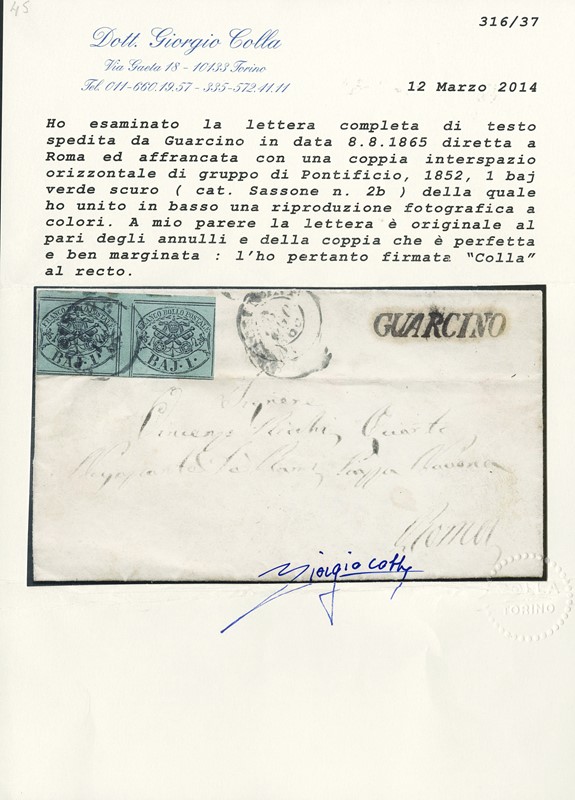 45
316/37
Dott. Giorgio Colla
Via Gaeta 18 - 10133 Torino
Tel. 011-660.19.57 - 335-572.11.11
12 Marzo 2014
Ho esaminato la lettera completa di testo
spedita da Guarcino in data 8.8.1865 diretta a
Roma ed affrancata con una coppia interspazio
orizzontale di gruppo di Pontificio, 1852, 1 baj
verde scuro ( cat. Sassone n. 2b ) della quale
ho unito in basso una riproduzione fotografica a
colori. A mio parere la lettera è originale al
pari degli annulli e della coppia che è perfetta
e ben marginata : l'ho pertanto firmata “Colla”
al recto.
FRANCO BOLLO POSTALE FRANCO BOLLO POSTALE
BAJ. 1 BAJ. 1
GUARCINO
Roma
Giorgio Colla
COLLA
TORINO